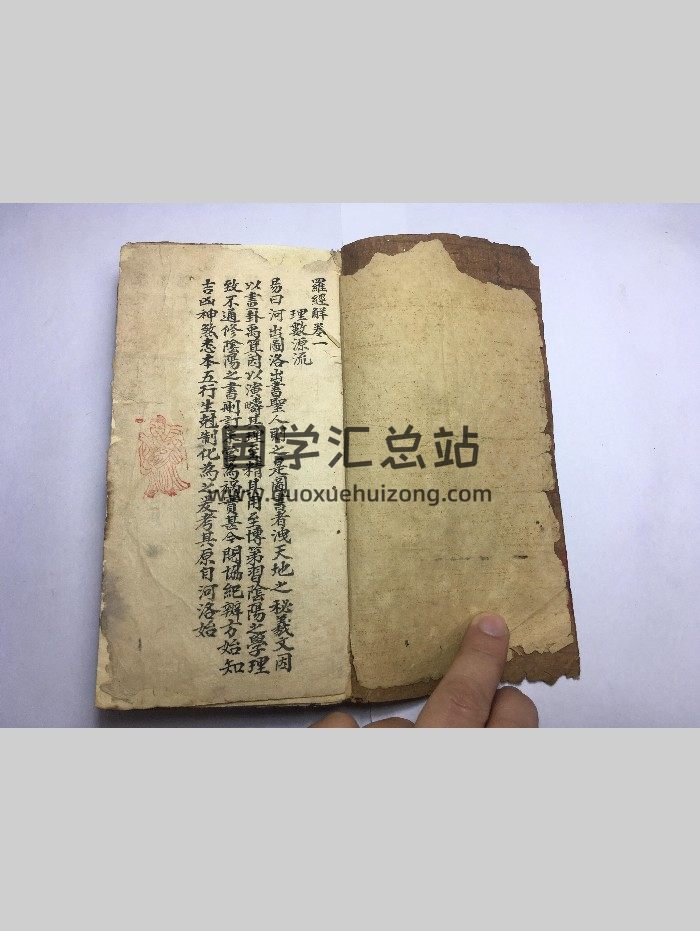 羅經解卷一
理數源流
易曰河出圖洛出書聖人則之是圖書者洩天地之秘羲文因
以畫卦禹箕因以演疇其理至精其用至博第習陰陽之學理
致不通修陰陽之書刪訂為甚今閱協紀辨方始知
吉凶神煞悉本五行生尅制化為之爰考其原自河洛始
国学汇总站
www.guoxuehuizong.com